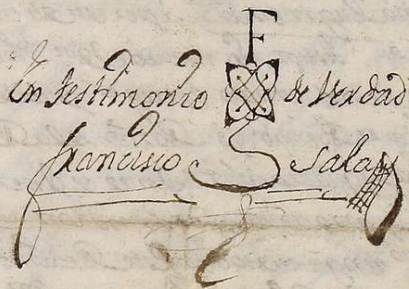 F
En testimonio de Verdad
francisco Salas